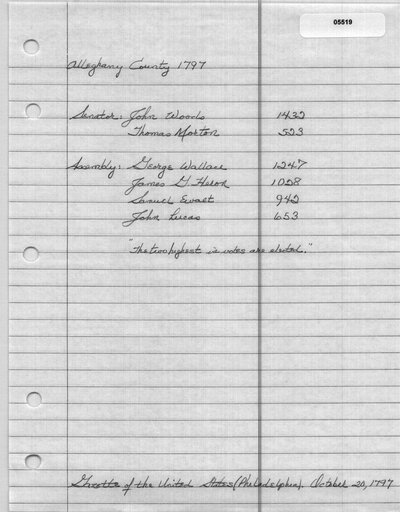 05519
Alleghany County 1797
Senator: John Woods 1432
Thomas Morton 523
Assembly: George Wallace 1247
James G Heron 1028
Samuel Ewalt 942
John Lucas 653
"The two highest in votes are elected."
Gazette of the United States (Philadelphia). October 20, 1797